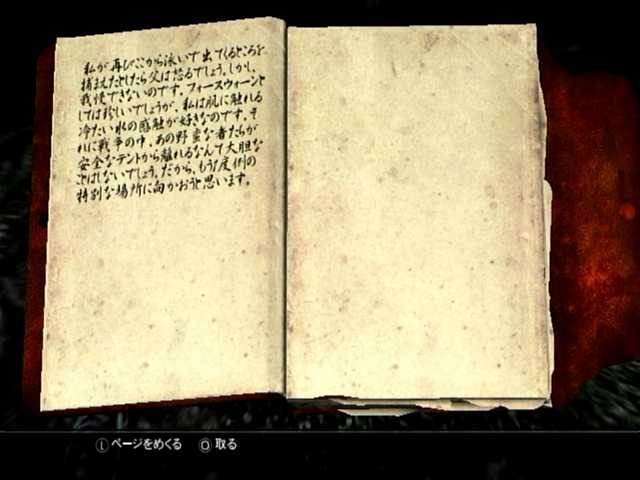 私が再びここから泳いで出てくるところを
捕まえたとしたら父は怒るでしょう。しかし、
我慢できないのです。フィースウィーンと
しては珍しいでしょうが、私は肌に触れる
冷たい水の感触が好きなのです。そ
れに戦争の中、あの野蛮な者たちが
安全なテントから離れるなんて大胆な
ことはしないでしょう。だから、もう1度例の
特別な場所に向かおうと思います。
Ⓛ ページをめくる Ⓞ 取る